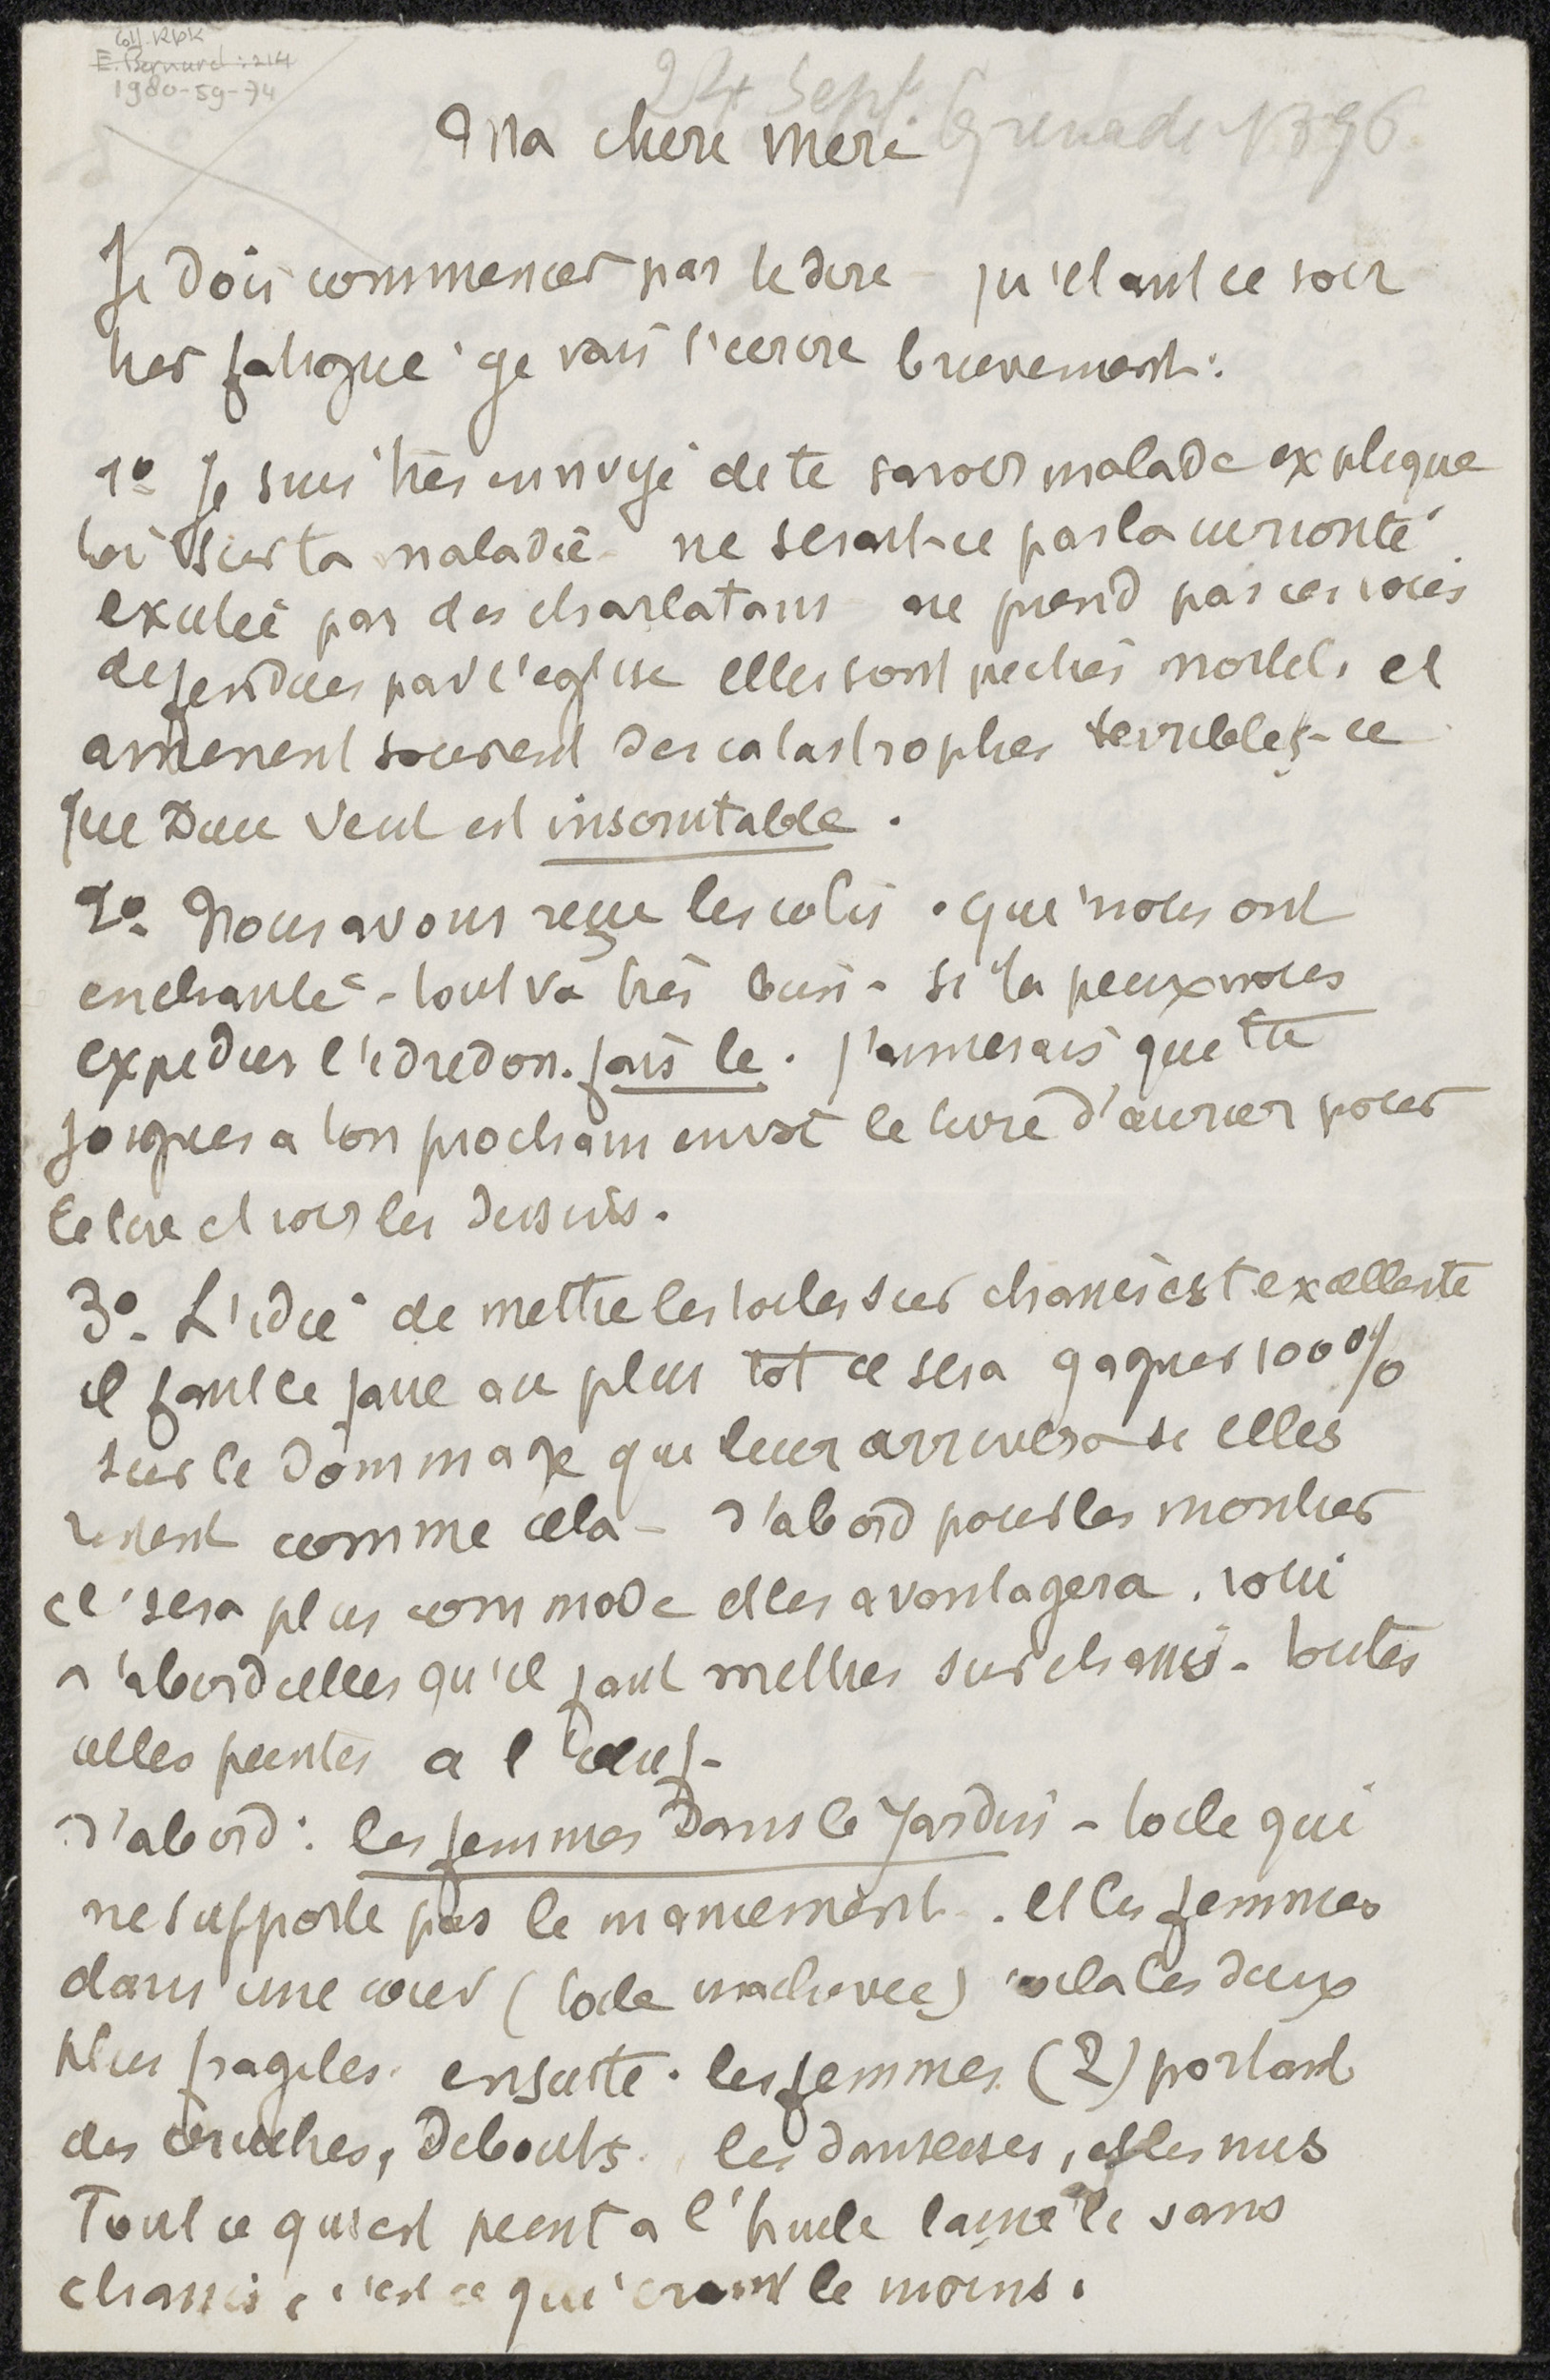 Coll. RKDK
E. Bernard : 214
1980-59-74
24 Sept. Grenade 1896.
Ma chere mere
Je dois commencer par te dire qu'etant ce soir
tres fatigué je vais t'ecrire brievement :
1º Je suis très ennuyé de te savoir malade explique
toi sur ta maladie - ne serait-ce pas la curiosité
excitée par des charlatans ne prend pas ces voies
defendues par l'eglise elles sont pechés mortels et
amenent souvent des catastrophes terribles - ce
que Dieu veut est inscrutable .
2º. Nous avons reçu les colis . qui nous ont
enchanté - tout va très bien - si tu peux nous
expedier l'edredon . fais le . j'aimerais que tu
joignes a ton prochain envoi le livre d'aurier pour
le lire et voir les dessins .
3º. L'idée de mettre les toiles sur chassis est excellente
il faut le faire au plus tot ce sera gagner 100 %
sur le dommage qui leur arrivera si elles
restent comme cela - d'abord pour les montrer
ce sera plus commode et les avantagera . voici
d'abord celles qu'il faut mettres sur chassis - toutes
celles peintes a l'œuf -
d'abord : les femmes dans le jardin - toile qui
ne supporte pas le maniement . et les femmes
dans une cour (toile inachevée) voila les deux
plus fragiles . ensuite . les femmes (2) portant
des cruches, debouts . les danseuses, et les nus
Tout ce qui est peint a l'huile laisse le sans
chassis, c'est ce qui craint le moins .